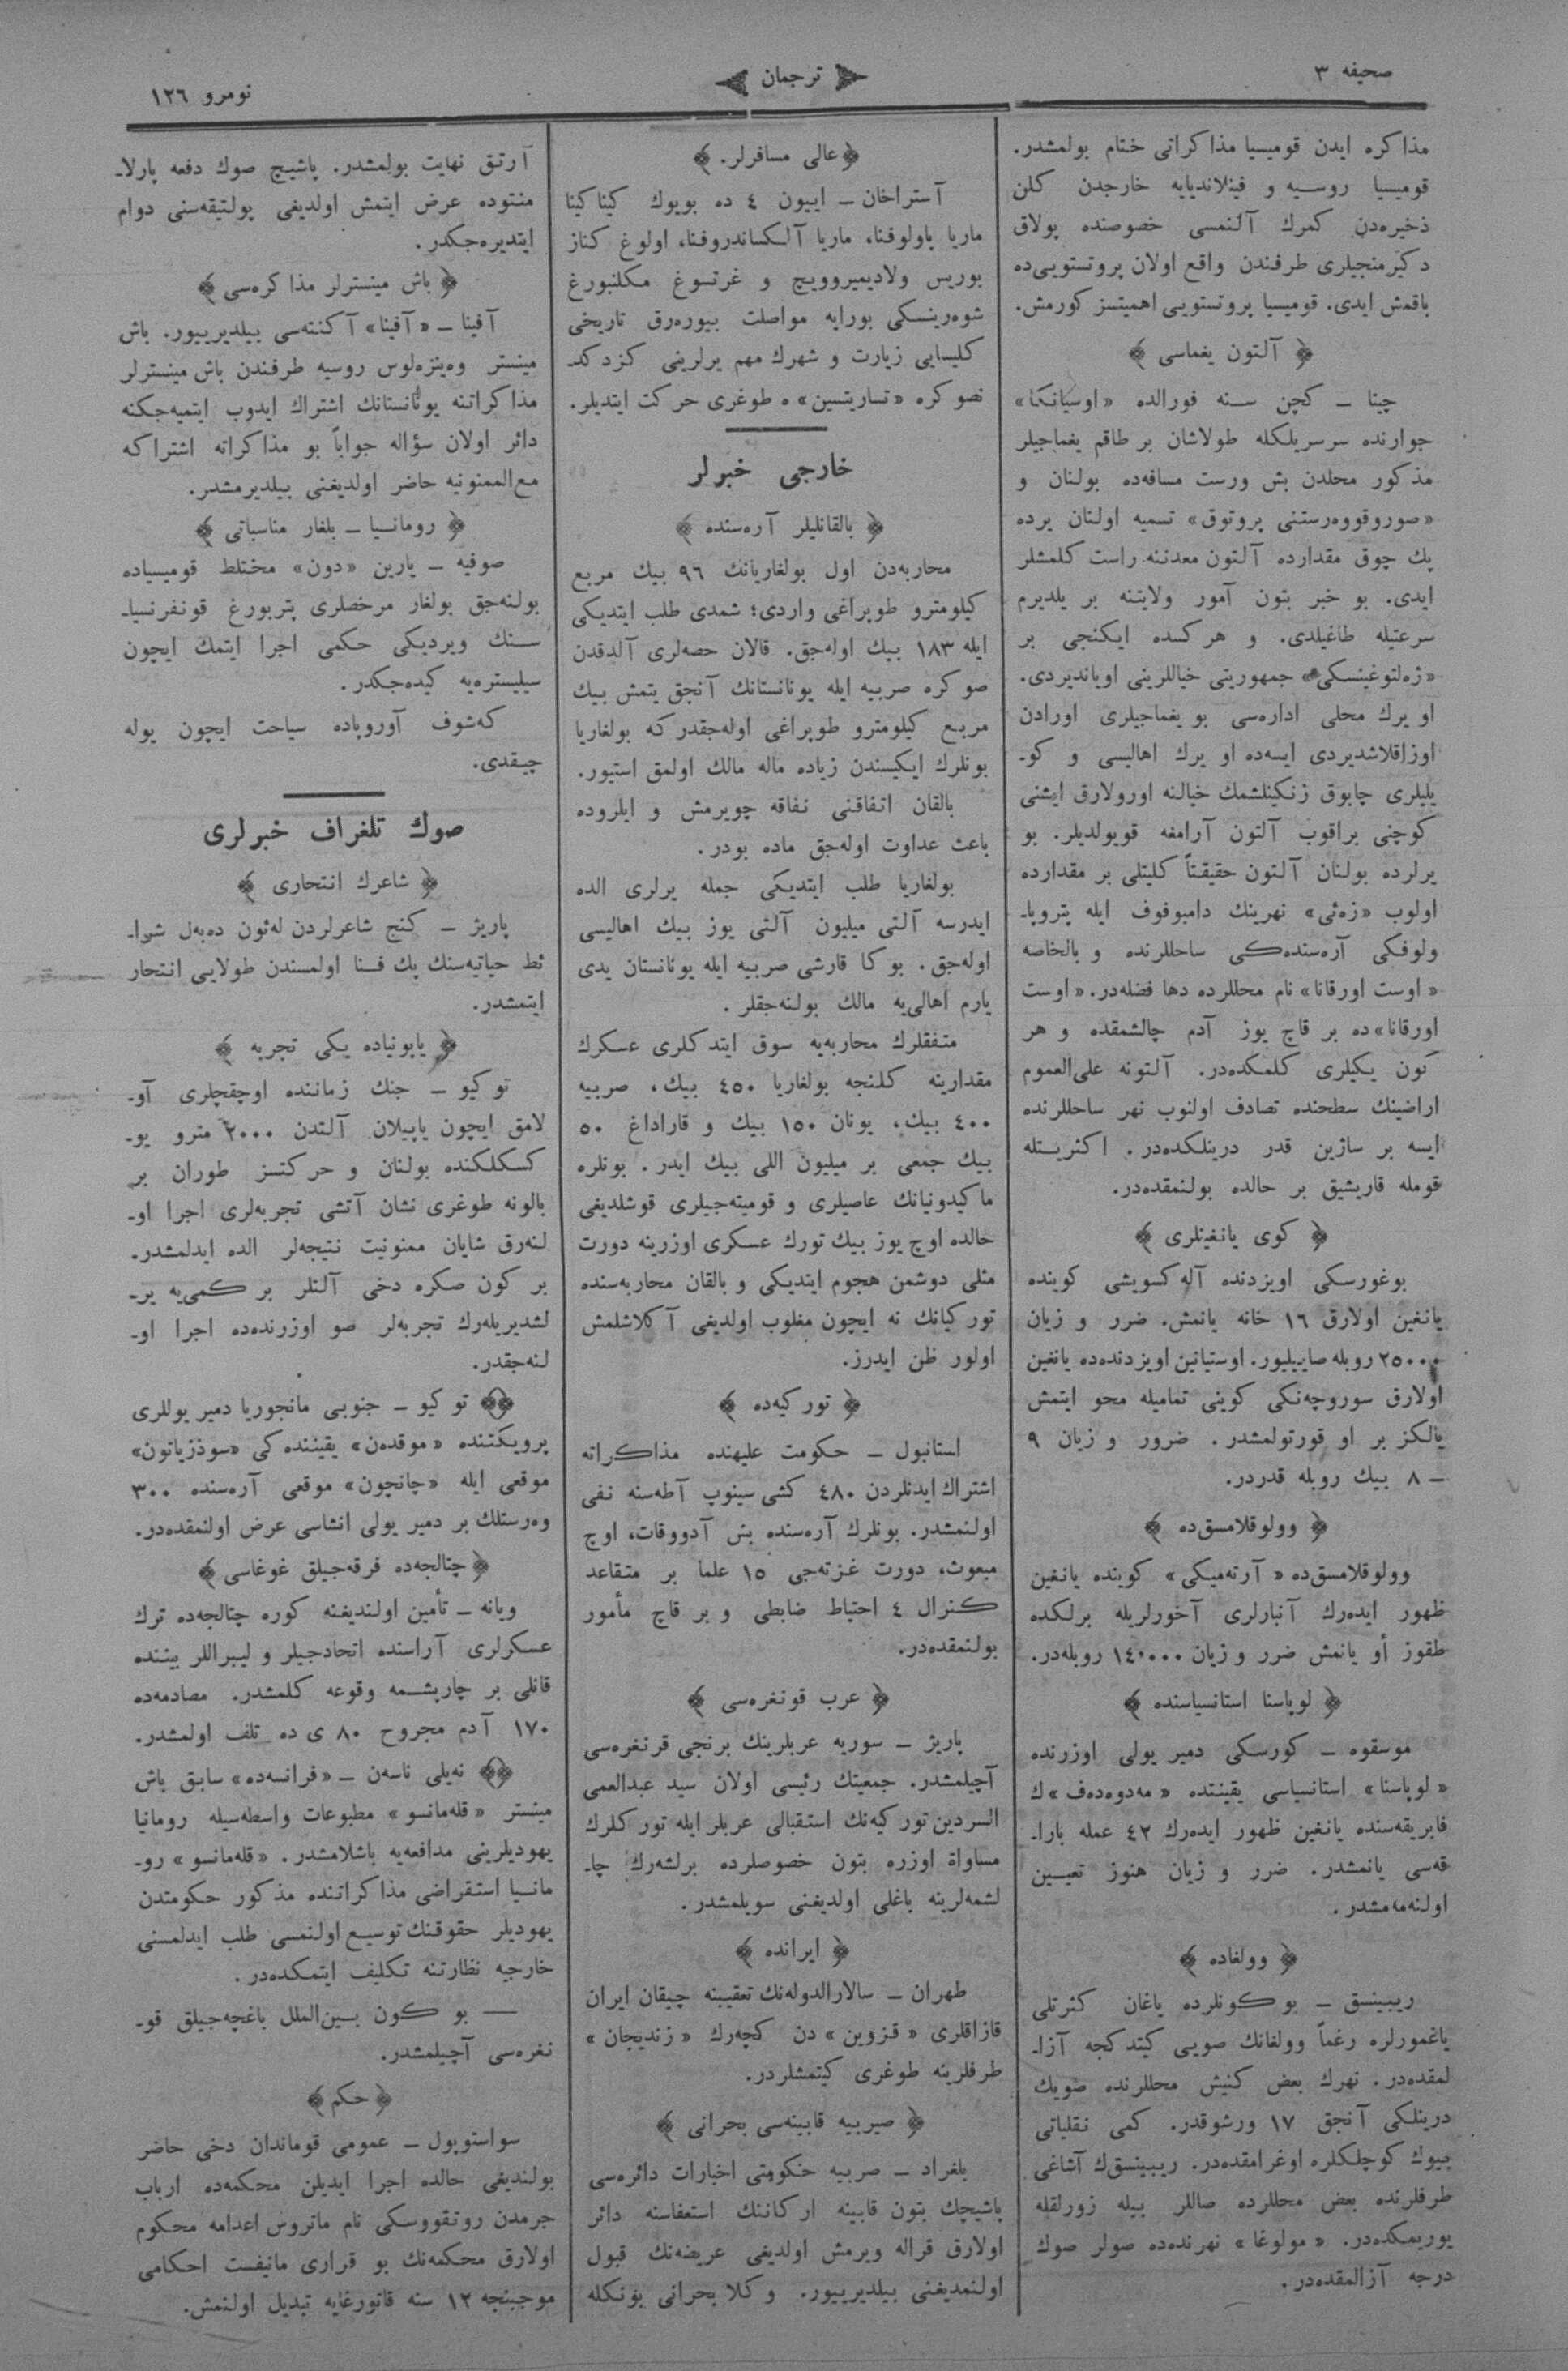 صحیفه ٣
ترجمان
نومرو ١٢٦
مذاکره ایدن قومیسیا مذاکراتی ختام بولمشدر.
قومیسیا روسیه و فینلاندیایه خارجدن کلن
ذخیره‌دن کمرك آلنمسی خصوصنده بولاق
دکیرمنجیلری طرفندن واقع اولان پروتستویی‌ده
باقمش ایدی. قومیسیا پروتستویی اهمیتسز کورمش.
﴿ آلتون یغماسی ﴾
چیتا ــ کچن سنه فورالده «اوسیانکا»
جوارنده سرسریلکله طولاشان بر طاقم یغماجیلر
مذکور محلدن بش ورست مسافه‌ده بولنان و
«صوروقووه‌رستنی پروتوق» تسمیه اولنان یرده
پك چوق مقدارده آلتون معدننه راست کلمشلر
ایدی. بو خبر بتون آمور ولایتنه بر یلدیرم
سرعتیله طاغیلدی. و هرکسده ایکنجی بر
«ژه‌لتوغینسکی» جمهوریتی خیاللرینی اویاندیردی.
او یرك محلی اداره‌سی بو یغماجیلری اورادن
اوزاقلاشدیردی ایسه‌ده او یرك اهالیسی و کو-
یلیلری چابوق زنکینلشمك خیالنه اورولارق ایشنی
کوچنی براقوب آلتون آرامغه قویولدیلر. بو
یرلرده بولنان آلتون حقیقتاً کلیتلی بر مقدارده
اولوب «زه‌ئی» نهرینك دامبوقوف ایله پتروپا-
ولوفکی آره‌سنده‌کی ساحللرنده و بالخاصه
«اوست اورقانا» نام محللرده دها فضله‌در. «اوست
اورقانا»ده بر قاچ یوز آدم چالشمقده و هر
کون یکیلری کلمکده‌در. آلتونه علی‌العموم
اراضینك سطحنده تصادف اولنوب نهر ساحللرنده
ایسه بر ساژین قدر درینلکده‌در. اکثریتله
قومله قاریشیق بر حالده بولنمقده‌در.
﴿ کوی یانغینلری ﴾
بوغورسکی اویزدنده آله‌کسویشی کوینده
یانغین اولارق ١٦ خانه یانمش. ضرر و زیان
٢٥٠٠٠ روبله صاییلیور. اوستیانین اویزدنده‌ده یانغین
اولارق سوروچه‌نکی کوینی تمامیله محو ایتمش
یالکز بر او قورتولمشدر. ضرور و زیان ٩
ــ ٨ بیك روبله قدردر.
﴿ وولوقلامسق‌ده ﴾
وولوقلامسق‌ده «آرته‌میکی» کوینده یانغین
ظهور ایده‌رك آنبارلری آخورلریله برلکده
طقوز أو یانمش ضرر و زیان ١٤٠٠٠٠ روبله‌در.
﴿ لوپاسنا استانسیاسنده ﴾
موسقوه ــ کورسکی دمیر یولی اوزرنده
«لوپاسنا» استانسیاسی یقیننده «مه‌دوه‌ده‌ف»ك
فابریقه‌سنده یانغین ظهور ایده‌رك ٤٢ عمله بارا-
قه‌سی یانمشدر. ضرر و زیان هنوز تعیین
اولنه‌مه‌مشدر.
﴿ وولغاده ﴾
ریبینسق ــ بو کونلرده یاغان کثرتلی
یاغمورلره رغماً وولغانك صویی کیتدکجه آزا-
لمقده‌در. نهرك بعض کنیش محللرنده صویك
درینلکی آنجق ١٧ ورشوقدر. کمی نقلیاتی
بیوك کوچلکلره اوغرامقده‌در. ریبینسق‌ك آشاغی
طرفلرنده بعض محللرده صاللر بیله زورلقله
یوریمکده‌در. «مولوغا» نهرنده‌ده صولر صوك
درجه آزالمقده‌در.
﴿عالی مسافرلر.﴾
آستراخان ــ اییون ٤ ده بویوك کیناکینا
ماریا پاولوفنا، ماریا آلکساندروفنا، اولوغ کناز
بوریس ولادیمیروویچ و غرتسوغ مکلنبورغ
شوه‌رینسکی بورایه مواصلت بیوره‌رق تاریخی
کلیسایی زیارت و شهرك مهم یرلرینی کزدکد
نصوکره «تساریتسین»ه طوغری حرکت ایتدیلر.
خارجی خبرلر
﴿ بالقانلیلر آره‌سنده ﴾
محاربه‌دن اول بولغاریانك ٩٦ بیك مربع
کیلومترو طوپراغی واردی؛ شمدی طلب ایتدیکی
ایله ١٨٣ بیك اوله‌جق. قالان حصه‌لری آلدقدن
صوکره صربیه ایله یونانستانك آنجق یتمش بیك
مربع کیلومترو طوپراغی اوله‌جقدرکه بولغاریا
بونلرك ایکیسندن زیاده ماله مالك اولمق استیور.
بالقان اتفاقنی نفاقه چویرمش و ایلروده
باعث عداوت اوله‌جق ماده بودر.
بولغاریا طلب ایتدیکی جمله یرلری الده
ایدرسه آلتی میلیون آلتی یوز بیك اهالیسی
اوله‌جق. بوکا قارشی صربیه ایله یونانستان یدی
یارم اهالی‌یه مالك بولنه‌جقلر.
متفقلرك محاربه‌یه سوق ایتدکلری عسکرك
مقدارینه کلنجه بولغاریا ٤٥٠ بیك، صربیه
٤٠٠ بیك، یونان ١٥٠ بیك و قاراداغ ٥٠
بیك جمعی بر میلیون اللی بیك ایدر. بونلره
ماکیدونیانك عاصیلری و قومیته‌جیلری قوشلدیغی
حالده اوچ یوز بیك تورك عسکری اوزرینه دورت
مثلی دوشمن هجوم ایتدیکی و بالقان محاربه‌سنده
تورکیانك نه ایچون مغلوب اولدیغی آکلاشلمش
اولور ظن ایدرز.
﴿ تورکیه‌ده ﴾
استانبول ــ حکومت علیهنده مذاکراته
اشتراك ایدنلردن ٤٨٠ کشی سینوپ آطه‌سنه نفی
اولنمشدر. بونلرك آره‌سنده بش آدووقات، اوچ
مبعوث، دورت غزته‌جی ١٥ علما بر متقاعد
کنرال ٤ احتیاط ضابطی و بر قاچ مأمور
بولنمقده‌در.
﴿ عرب قونغره‌سی ﴾
پاریژ ــ سوریه عربلرینك برنجی قونغره‌سی
آچیلمشدر. جمعیتك رئیسی اولان سید عبدالعمی
السردین تورکیه‌نك استقبالی عربلر ایله تورکلرك
مساواة اوزره بتون خصوصلرده برلشه‌رك چا-
لشمه‌لرینه باغلی اولدیغنی سویلمشدر.
﴿ ایرانده ﴾
طهران ــ سالارالدوله‌نك تعقیبنه چیقان ایران
قازاقلری «قزوین» دن کچه‌رك «زندیجان»
طرفلرینه طوغری کیتمشلردر.
﴿ صیربیه قابینه‌سی بحرانی ﴾
بلغراد ــ صربیه حکومتی اخبارات دائره‌سی
پاشیچك بتون قابینه ارکاننك استعفاسنه دائر
اولارق قراله ویرمش اولدیغی عریضه‌نك قبول
اولنمدیغنی بیلدیرییور. وکلا بحرانی بونکله
آرتق نهایت بولمشدر. پاشیچ صوك دفعه پارلا-
منتوده عرض ایتمش اولدیغی پولتیقه‌سنی دوام
ایتدیره‌جکدر.
﴿ باش مینسترلر مذاکره‌سی ﴾
آفینا ــ «آفینا» آکنته‌سی بیلدیرییور. باش
مینستر وه‌نیزه‌لوس روسیه طرفندن باش مینسترلر
مذاکراتنه یونانستانك اشتراك ایدوب ایتمیه‌جکنه
دائر اولان سؤاله جواباً بو مذاکراته اشتراکه
مع‌الممنونیه حاضر اولدیغنی بیلدیرمشدر.
﴿ رومانیا ــ بلغار مناسباتی ﴾
صوفیه ــ یارین «دون» مختلط قومیسیاده
بولنه‌جق بولغار مرخصلری پتربورغ قونفرنسیا-
سنك ویردیکی حکمی اجرا ایتمك ایچون
سیلیستره‌یه کیده‌جکدر.
که‌شوف آوروپاده سیاحت ایچون یوله
چیقدی.
صوك تلغراف خبرلری
﴿ شاعرك انتحاری ﴾
پاریژ ــ کنج شاعرلردن له‌ئون ده‌به‌ل شرا-
ئط حیاتیه‌سنك پك فنا اولمسندن طولایی انتحار
ایتمشدر.
﴿ یاپونیاده یکی تجربه ﴾
توکیو ــ جنك زماننده اوچقچلری آو-
لامق ایچون یاپیلان آلتدن ٢٠٠٠ مترو یو-
کسکلکنده بولنان و حرکتسز طوران بر
بالونه طوغری نشان آتشی تجربه‌لری اجرا او-
لنه‌رق شایان ممنونیت نتیجه‌لر الده ایدلمشدر.
بر کون صکره دخی آلتلر بر کمی‌یه یر-
لشدیریله‌رك تجربه‌لر صو اوزرنده‌ده اجرا او-
لنه‌جقدر.
توکیو ــ جنوبی مانجوریا دمیر یوللری
پرویکتنده «موقدەن» یقیننده‌کی «سوذزیاتون»
موقعی ایله «چانچون» موقعی آره‌سنده ٣٠٠
وه‌رستلك بر دمیر یولی انشاسی عرض اولنمقده‌در.
﴿چتالجه‌ده فرقه‌جیلق غوغاسی﴾
ویانه ــ تأمین اولندیغنه کوره چتالجه‌ده ترك
عسکرلری آراسنده اتحادجیلر و لیبراللر بیننده
قانلی بر چارپشمه وقوعه کلمشدر. مصادمه‌ده
١٧٠ آدم مجروح ٨٠ ی ده تلف اولمشدر.
نه‌یلی ناسه‌ن ــ «فرانسه‌ده» سابق باش
مینستر «قله‌مانسو» مطبوعات واسطه‌سیله رومانیا
یهودیلرینی مدافعه‌یه باشلامشدر. «قله‌مانسو» رو-
مانیا استقراضی مذاکراتنده مذکور حکومتدن
یهودیلر حقوقنك توسیع اولنمسی طلب ایدلمسنی
خارجیه نظارتنه تکلیف ایتمکده‌در.
ــــ بو کون بین‌الملل باغچه‌جیلق قو-
نغره‌سی آچیلمشدر.
﴿حکم﴾
سواستوپول ــ عمومی قوماندان دخی حاضر
بولندیغی حالده اجرا ایدیلن محکمه‌ده ارباب
جرمدن روتقووسکی نام ماتروس اعدامه محکوم
اولارق محکمه‌نك بو قراری مانیفست احکامی
موجبنجه ١٢ سنه قاتورغایه تبدیل اولنمش.